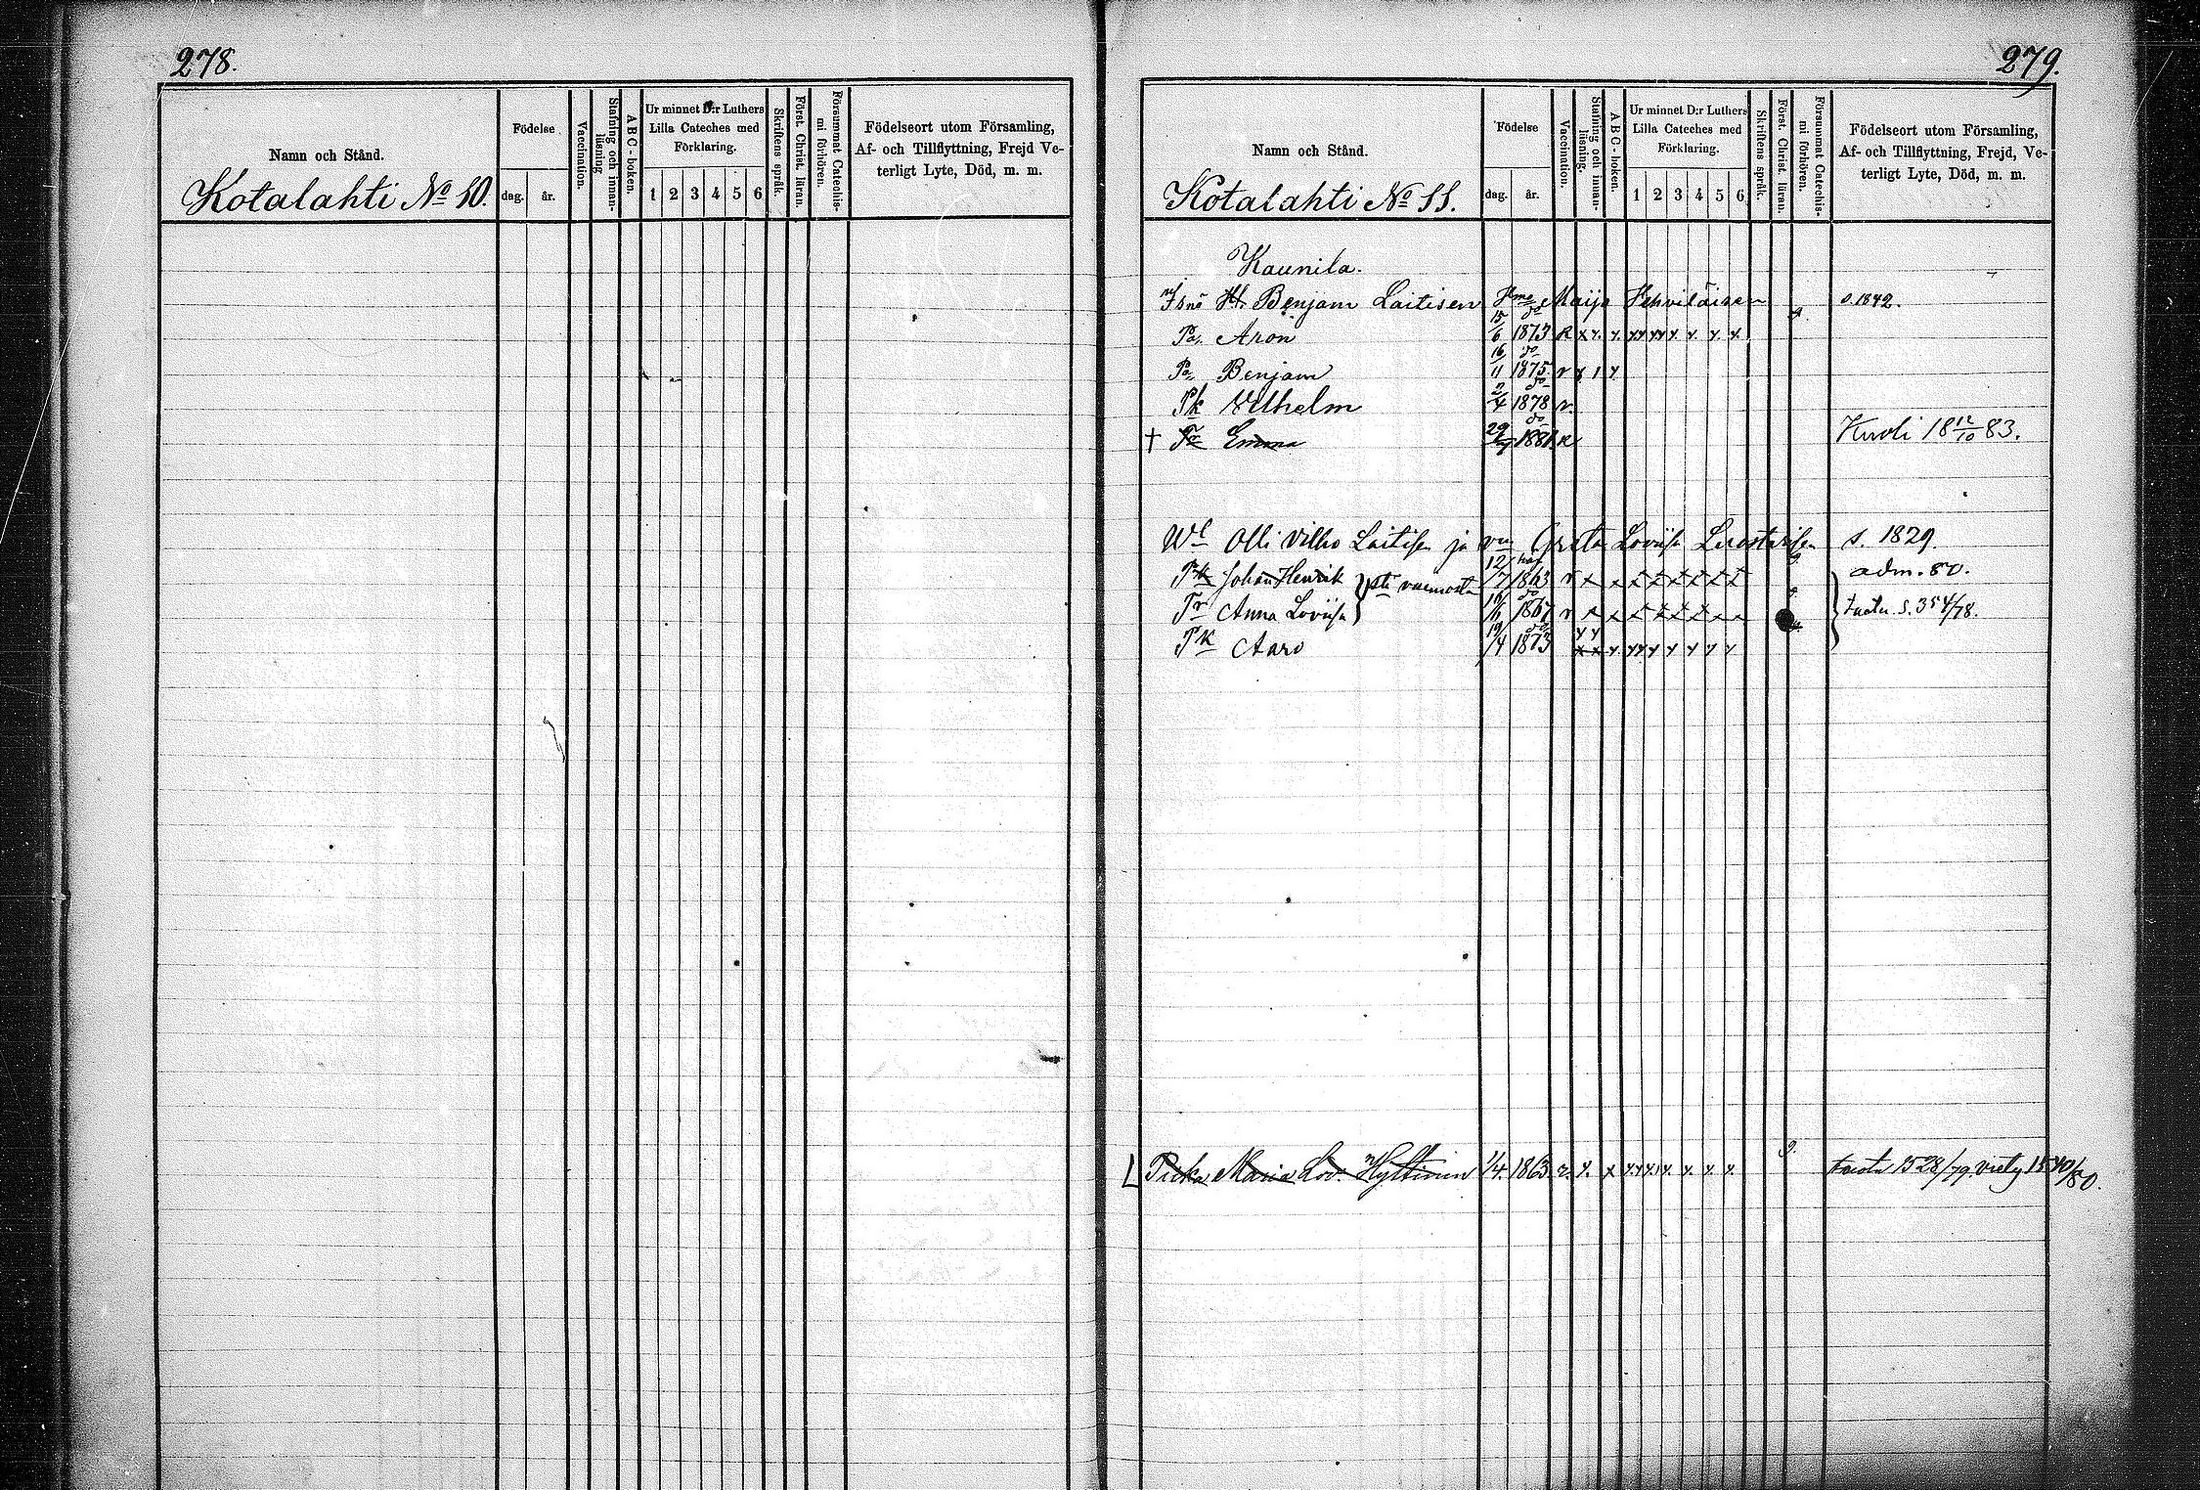 278.
Namn och Stånd.
Kotalahti No 10.
Födelse
dag. år.
Vaccination.
Stafning och innanläsning
ABC-boken.
Ur minnet D:r Luthers
Lilla Cateches med
Förklaring.
1 2 3 4 5 6
Skriftens språk.
Först. Christ. läran.
Försummat Catechismi förhören.
Födelseort utom Församling,
Af- och Tillflyttning, Frejd Ve-
terligt Lyte, Död, m. m.
279.
Namn och Stånd.
Kotalahti No 11.
Födelse
dag. år.
Vaccination.
Stafning och innanläsning.
ABC-boken.
Ur minnet D:r Luthers
Lilla Cateches med
Förklaring.
1 2 3 4 5 6
Skriftens språk.
Först. Christ. läran.
Försummat Catechismi förhören.
Födelseort utom Församling,
Af- och Tillflyttning, Frejd, Ve-
terligt Lyte, Död, m. m.
Kaunila.
Benjam Laitisen Maija Hehviläisen s. 1842.
Aron 15/6 1873
Benjam 16/11 1875
Pk Vilhelm 2/4 1878
† Emma 1881 Kuoli 18 12/10 83.
Olli Vilho Laitisen ja Greta Loviisa Luostarisen s. 1829.
Pk Johan Henrik 12/7 1863 adm. 80.
Tr Anna Loviisa 16/6 1867 S. 354/78.
Pk Aaro 19/4 1873
Piika Maria Lov. Hyttinen 1/4. 1863 1528/79